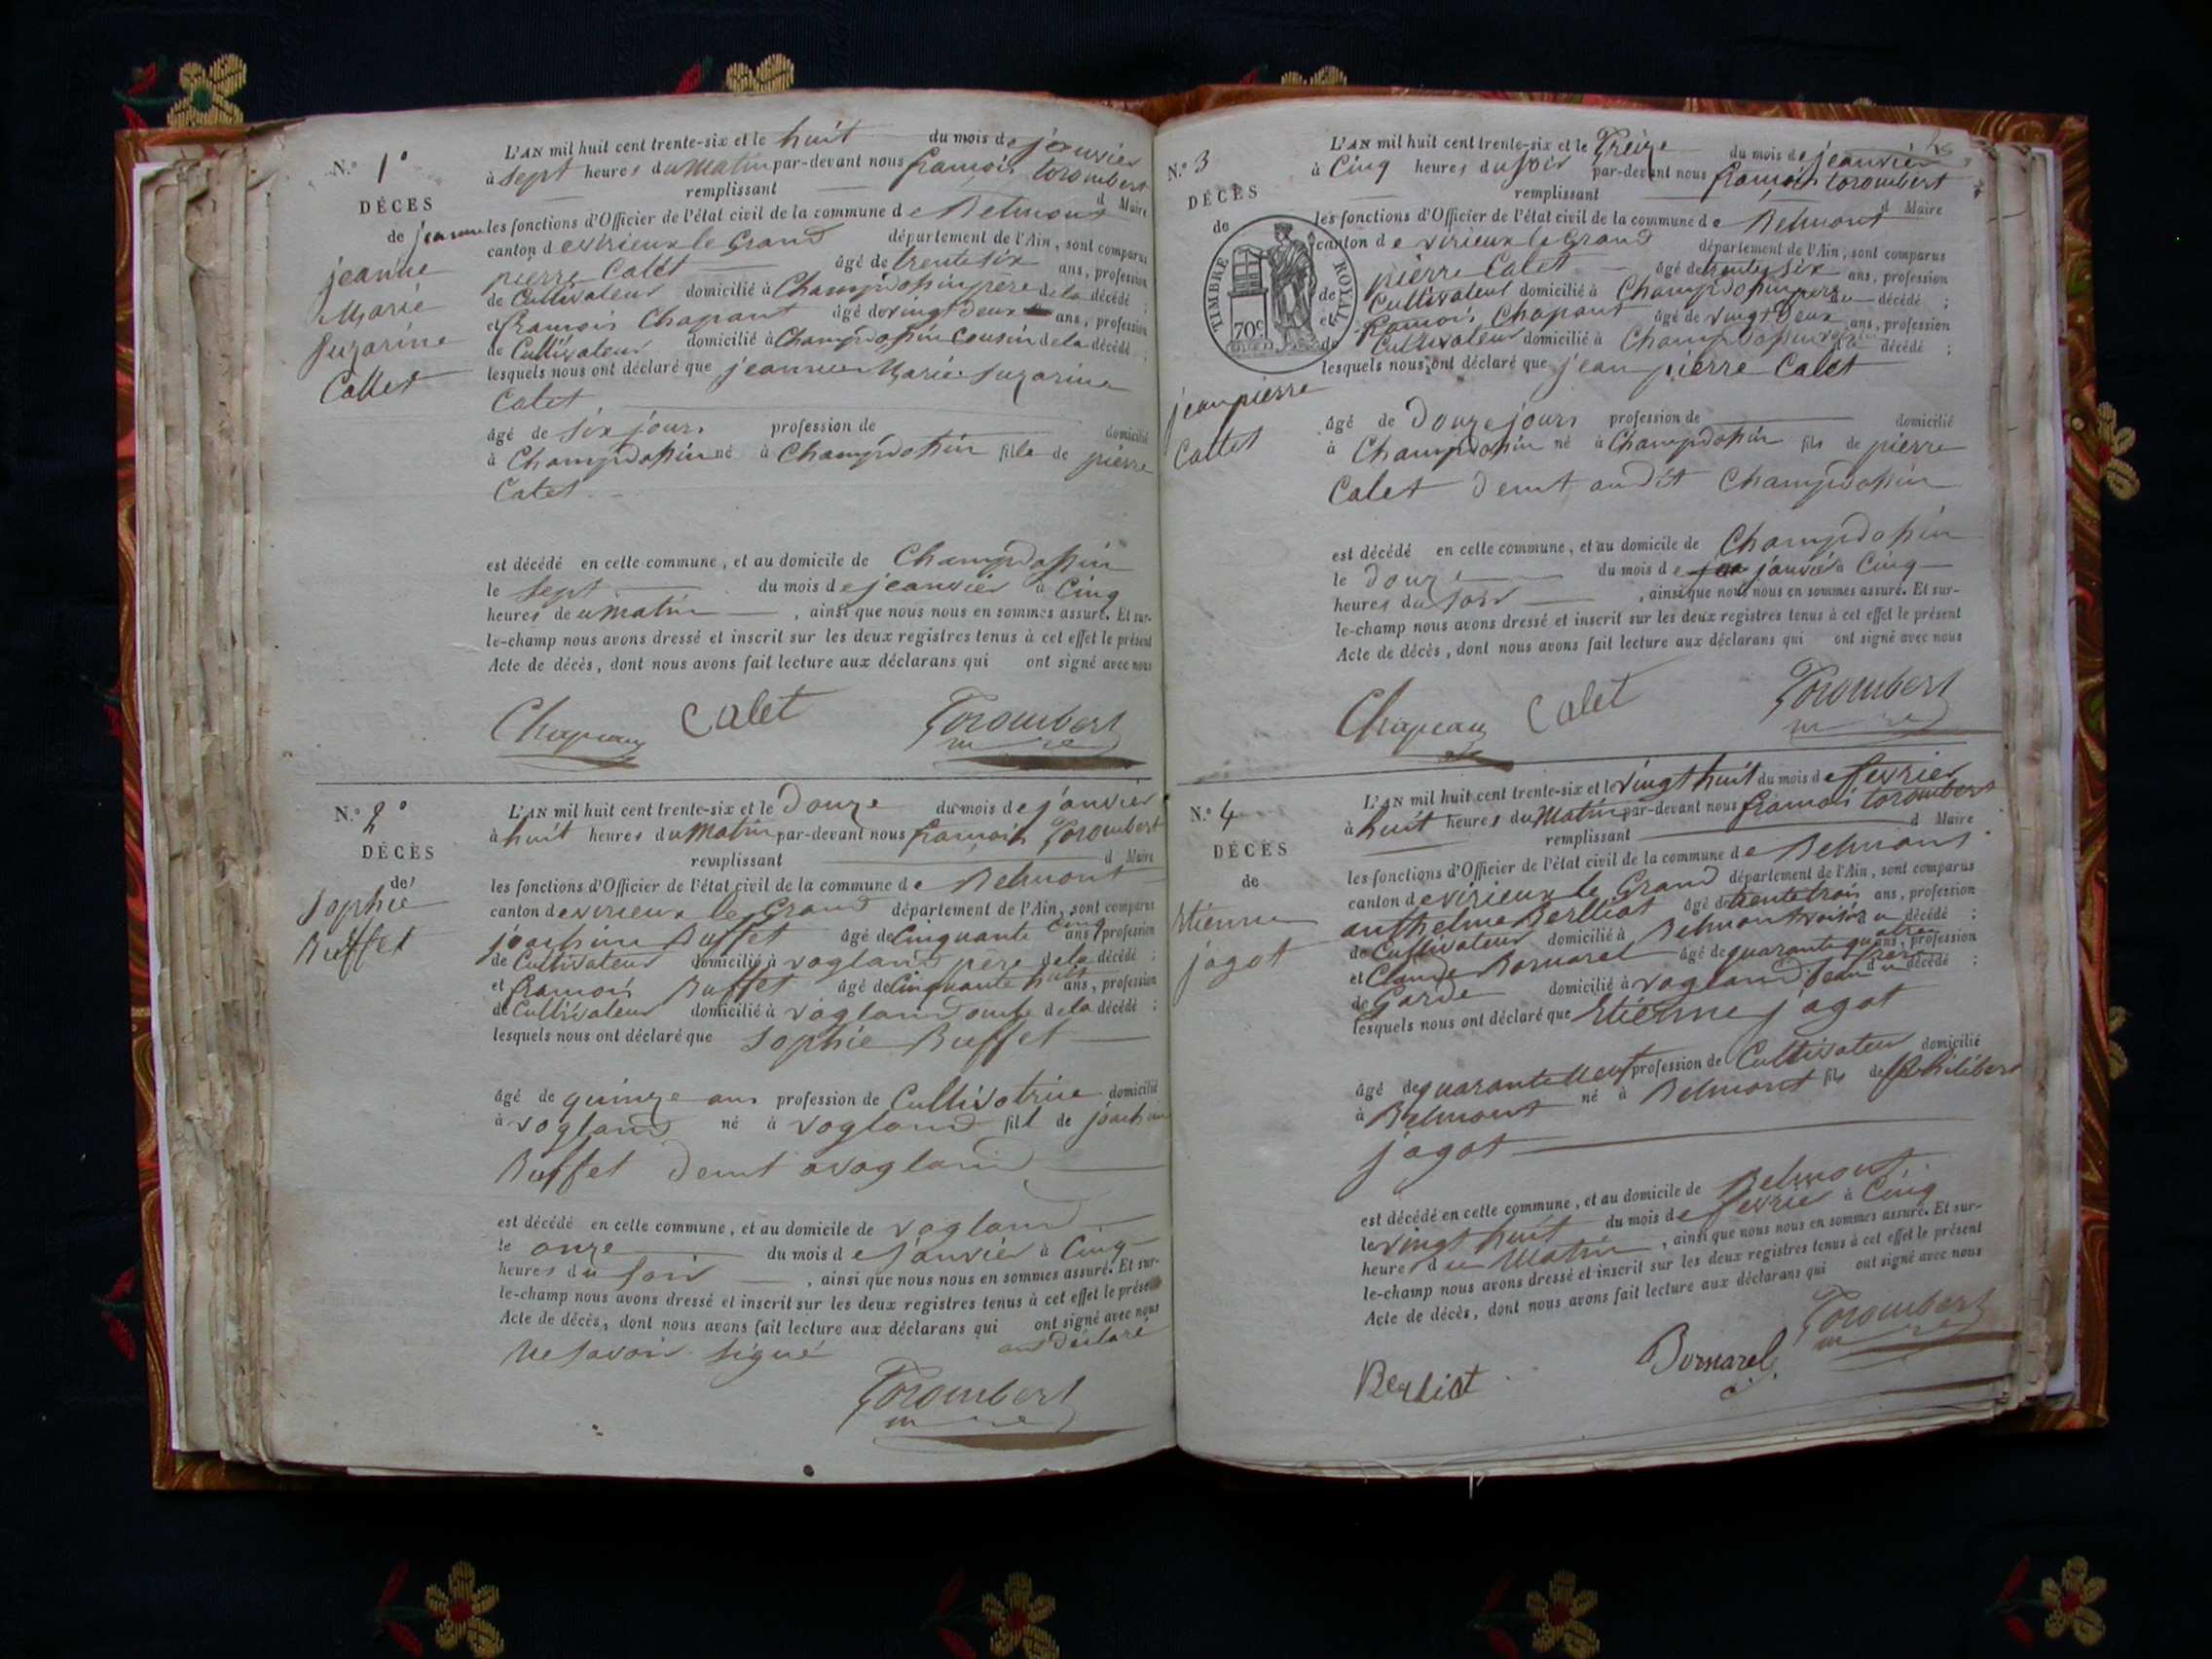 N.° 1°
DÉCES
de jeanne
jeanne
Marie
Suzarine
Callet
L'AN mil huit cent trente-six et le huit du mois de janvier
à sept heures du Matin par-devant nous françois torombert
remplissant d Maire
les fonctions d'Officier de l'état civil de la commune de Belmont
canton de virieux le Grand département de l'Ain, sont comparus
pierre Calet âgé de trente six ans, profession
de Cultivateur domicilié à Champdossin père de la décédé ;
et françois Chapant âgé de vingt deux ans, profession
de Cultivateur domicilié à Champdossin cousin de la décédé ;
lesquels nous ont déclaré que jeanne Marie Suzarine
Calet
âgé de six jours profession de domicilié
à Champdossin né à Champdossin fille de pierre
Calet
est décédé en cette commune, et au domicile de Champdossin
le sept du mois de jeanvier à Cinq
heures de u matin , ainsi que nous nous en sommes assuré. Et sur-
le-champ nous avons dressé et inscrit sur les deux registres tenus à cet effet le présent
Acte de décès, dont nous avons fait lecture aux déclarans qui ont signé avec nous
Chapeau Calet Torombert
N.° 2°
DÉCÈS
de
Sophie
Buffet
L'AN mil huit cent trente-six et le Douze du mois de janvier
à huit heures du Matin par-devant nous françois Torombert
remplissant d Maire
les fonctions d'Officier de l'état civil de la commune de Belmont
canton de virieux le Grand département de l'Ain, sont comparus
joachim Buffet âgé de Cinquante cinq ans, profession
de Cultivateur domicilié à vogland père de la décédé ;
et françois Buffet âgé de Cinquante huit ans, profession
de Cultivateur domicilié à vogland oncle de la décédé ;
lesquels nous ont déclaré que Sophie Buffet
âgé de quinze ans profession de Cultivatrice domicilié
à vogland né à vogland fill de joachim
Buffet demt a vogland
est décédé en cette commune, et au domicile de vogland
le onze du mois de janvier à Cinq
heures du soir , ainsi que nous nous en sommes assuré. Et sur-
le-champ nous avons dressé et inscrit sur les deux registres tenus à cet effet le présent
Acte de décès, dont nous avons fait lecture aux déclarans qui ont signé avec nous
ont Déclaré
Ne savoir signé
Torombert
N.° 3
DÉCÈS
de
TIMBRE ROYAL
70c
jean pierre
Callet
L'AN mil huit cent trente-six et le Treize du mois de jeanvier
à Cinq heures du soir par-devant nous françois torombert
remplissant d Maire
les fonctions d'Officier de l'état civil de la commune de Belmont
canton de virieux le Grand département de l'Ain, sont comparus
pierre Calet âgé de trente six ans, profession
de Cultivateur domicilié à Champdossin père du décédé ;
et françois Chapant âgé de vingt Deux ans, profession
de Cultivateur domicilié à Champdossin décédé ;
lesquels nous ont déclaré que jean pierre Calet
âgé de Douze jours profession de domicilié
à Champdossin né à Champdossin fils de pierre
Calet demt au dit Champdossin
est décédé en cette commune, et au domicile de Champdossin
le douze du mois de janvier à Cinq
heures du soir , ainsi que nous nous en sommes assuré. Et sur-
le-champ nous avons dressé et inscrit sur les deux registres tenus à cet effet le présent
Acte de décès, dont nous avons fait lecture aux déclarans qui ont signé avec nous
Chapeau Calet Torombert
N.° 4
DÉCÈS
de
Etienne
jagot
L'AN mil huit cent trente-six et le vingt huit du mois de fevrier
à huit heures du Matin par-devant nous françois torombert
remplissant d Maire
les fonctions d'Officier de l'état civil de la commune de Belmont
canton de virieux le Grand département de l'Ain, sont comparus
anthelme Berlliot âgé de trente trois ans, profession
de Cultivateur domicilié à Belmont voisin du décédé ;
et Claude Bornarel âgé de quarante quatre ans, profession
de Garde domicilié à vogland beau frere du décédé ;
lesquels nous ont déclaré que Etienne jagot
âgé de quarante neuf profession de Cultivateur domicilié
à Belmont né à Belmont fils de philibert
jagot
est décédé en cette commune, et au domicile de Belmont
le vingt huit du mois de fevrier à Cinq
heures du Matin , ainsi que nous nous en sommes assuré. Et sur-
le-champ nous avons dressé et inscrit sur les deux registres tenus à cet effet le présent
Acte de décès, dont nous avons fait lecture aux déclarans qui ont signé avec nous
Berliot Bornarel Torombert